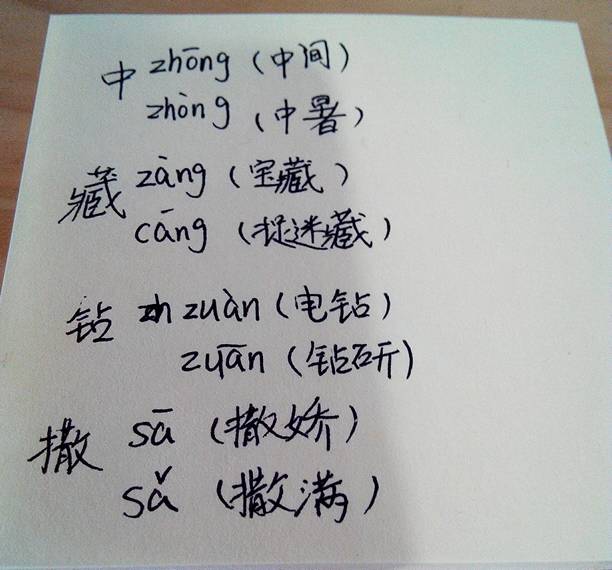 中 zhōng（中间）
zhòng（中暑）
藏 zàng（宝藏）
cāng（捉迷藏）
钻 zuàn（电钻）
zuān（钻研）
撒 sā（撒娇）
sǎ（撒满）